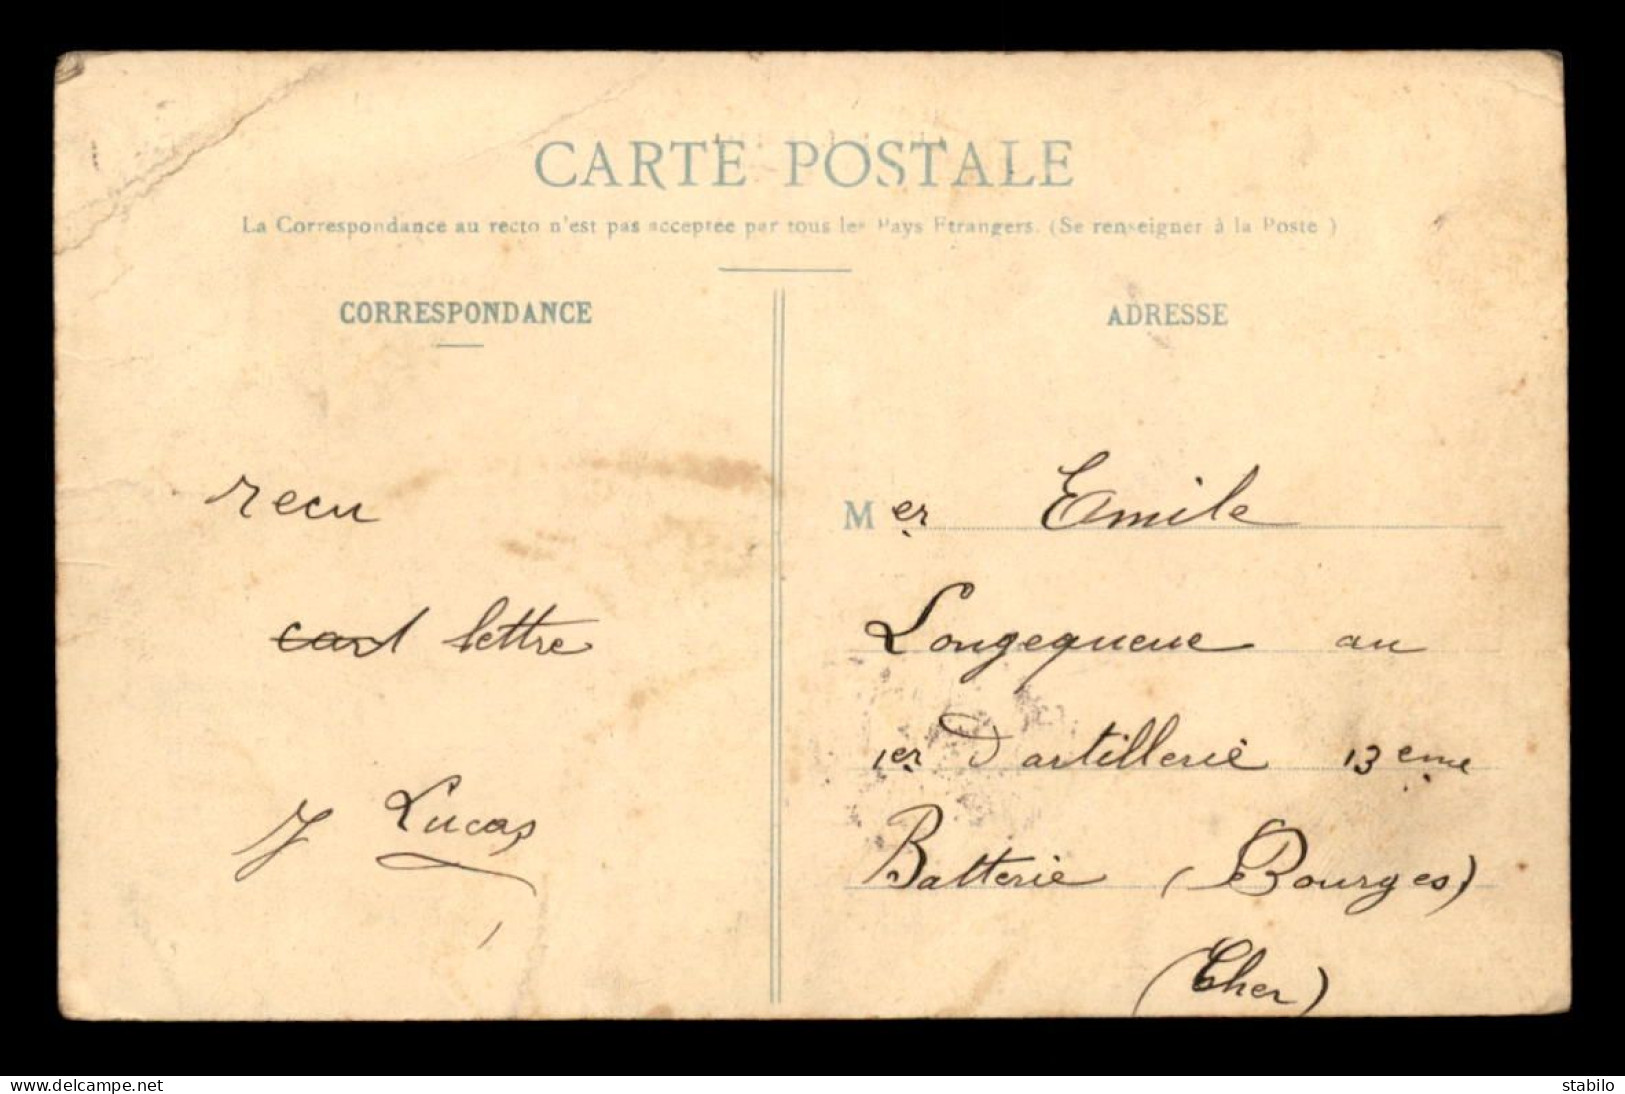 CARTE POSTALE
La Correspondance au recto n'est pas acceptée par tous les Pays Etrangers. (Se renseigner à la Poste)
CORRESPONDANCE
recu
cart lettre
J Lucas
ADRESSE
Mer Emile
Longequeue au
1er D'artillerie 13eme
Batterie (Bourges)
(Cher)
delcampe.net
stabilo